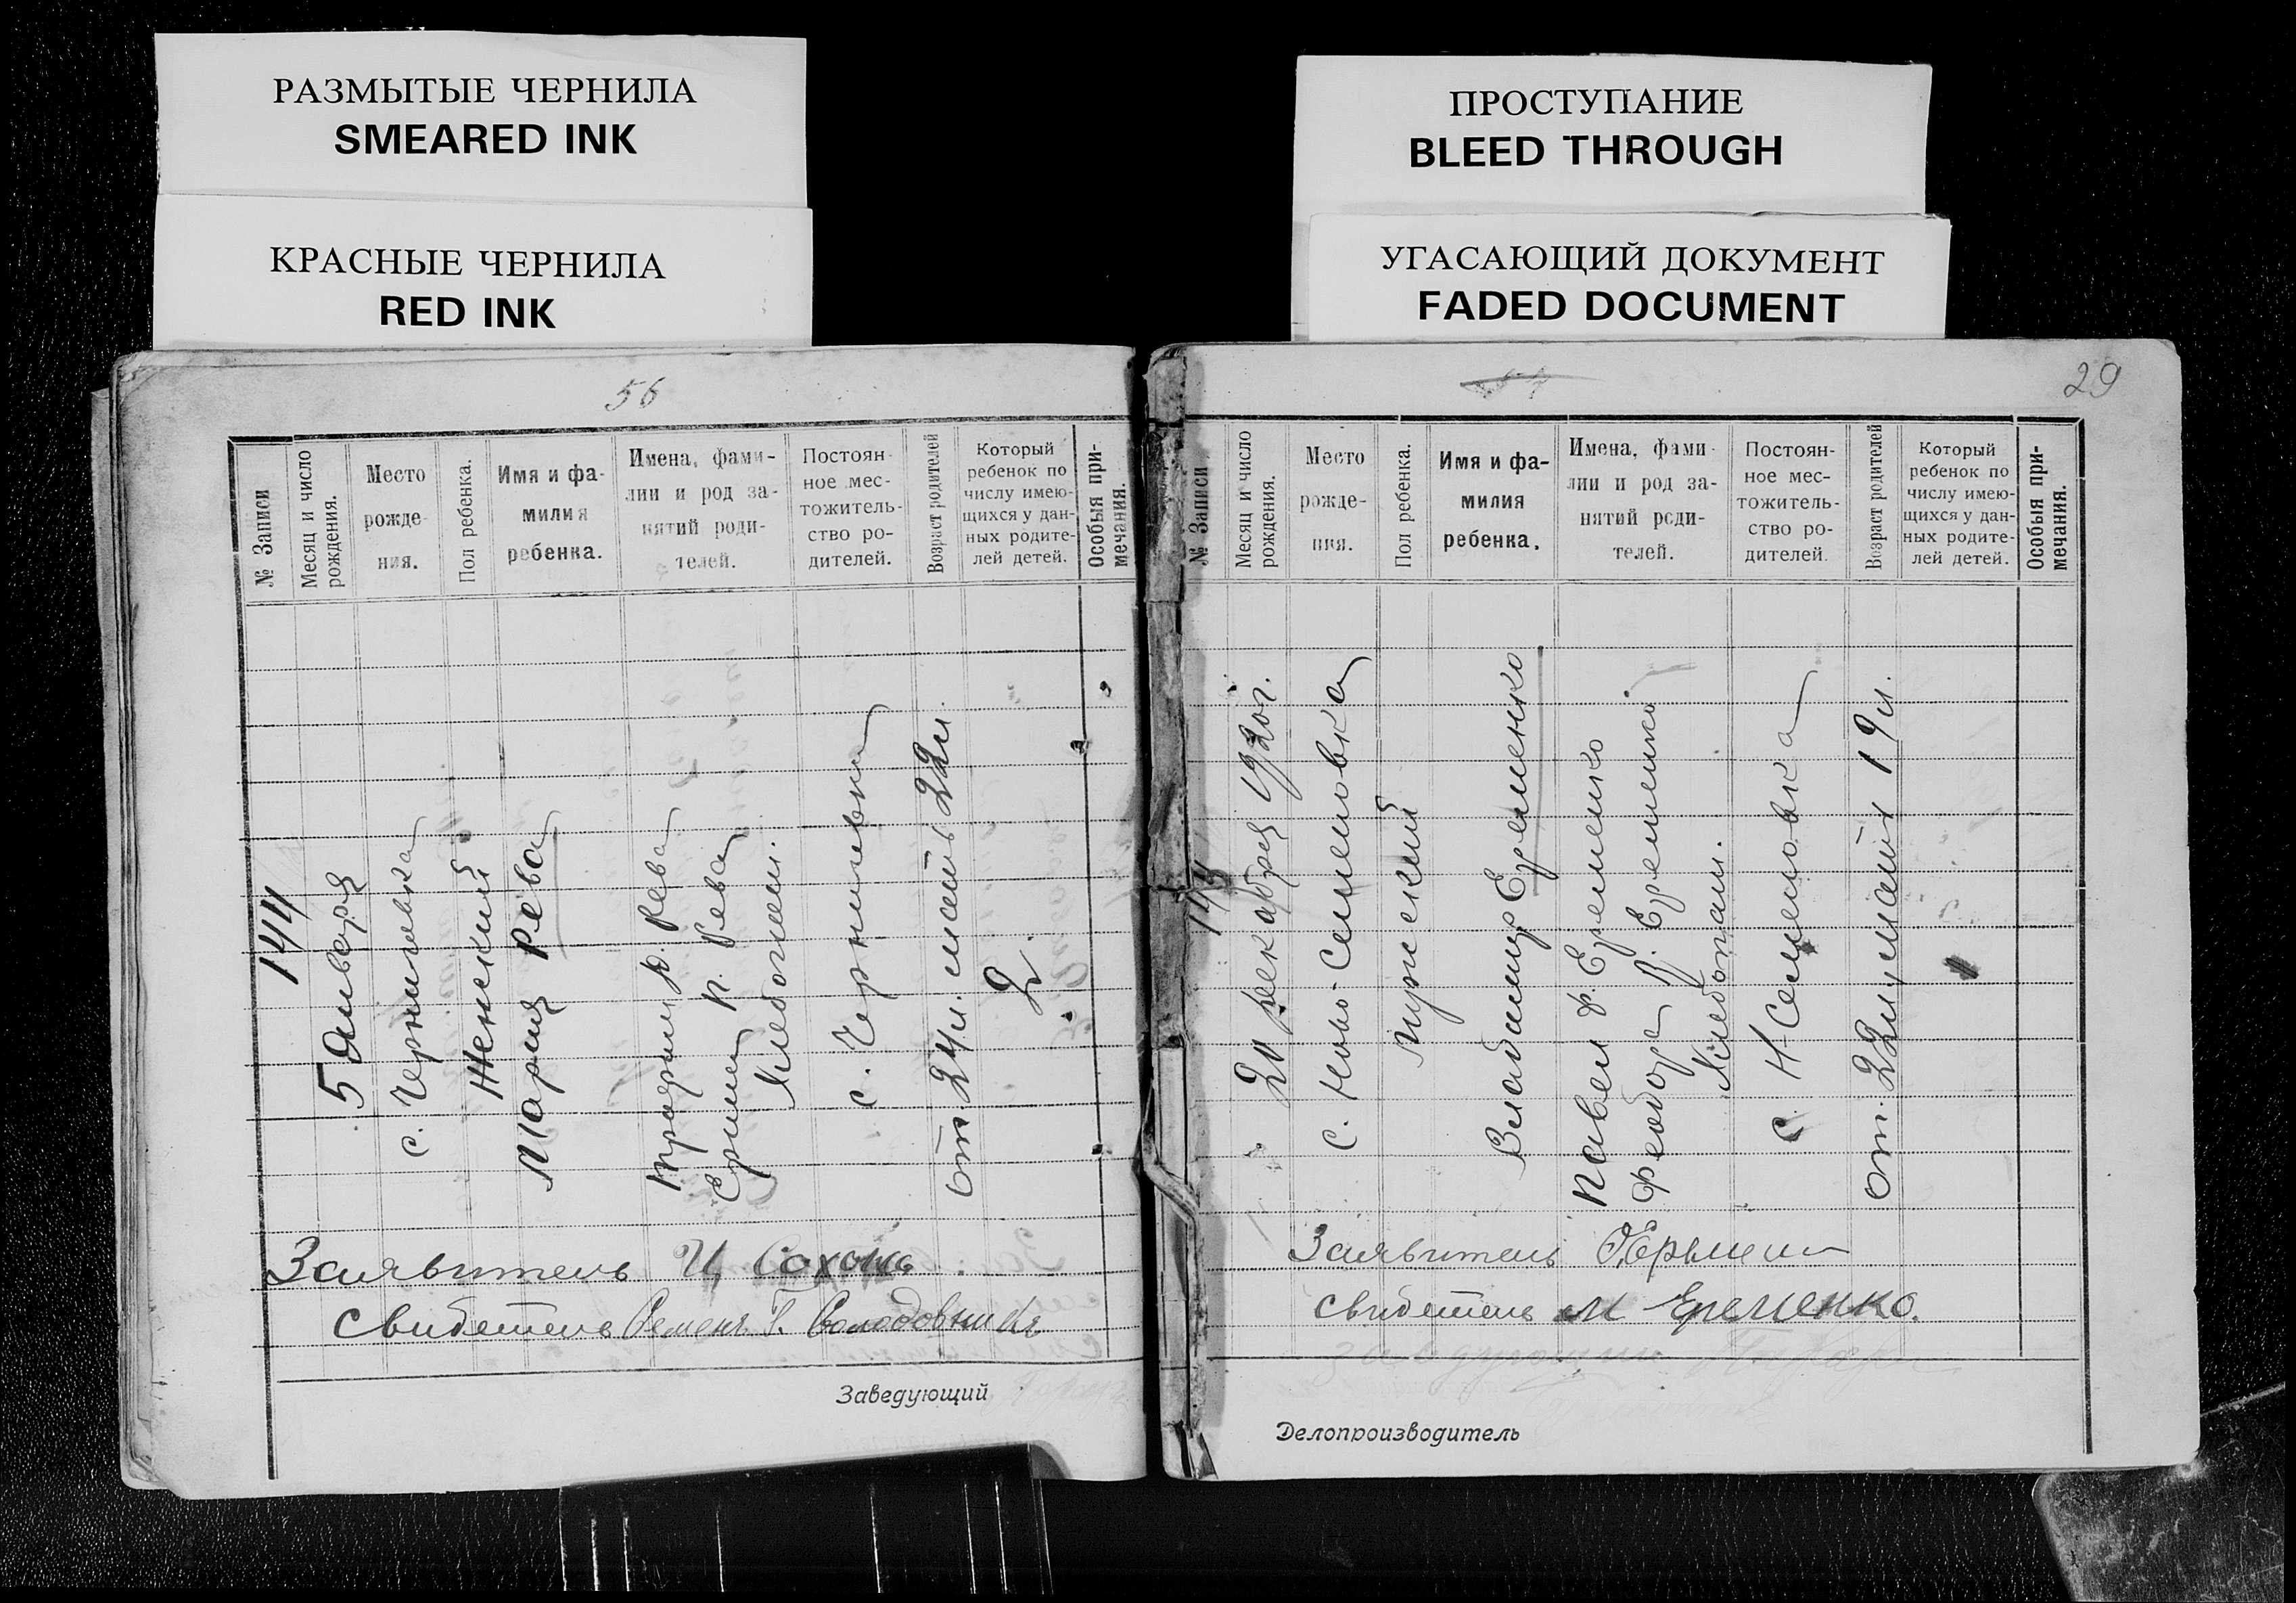 РАЗМЫТЫЕ ЧЕРНИЛА
SMEARED INK
КРАСНЫЕ ЧЕРНИЛА
RED INK
ПРОСТУПАНИЕ
BLEED THROUGH
УГАСАЮЩИЙ ДОКУМЕНТ
FADED DOCUMENT
56
№ Записи
Месяц и число
рождения.
Место
рожде-
ния.
Пол ребенка.
Имя и фа-
милия
ребенка.
Имена, фами-
лии и род за-
нятий роди-
телей.
Постоян-
ное мес-
тожитель-
ство ро-
дителей.
Возраст родителей
Который
ребенок по
числу имею-
щихся у дан-
ных родите-
лей детей.
Особыя при-
мечания.
144
5 Января
с. Черниговка
Женский
Мария Рева
Рева
П. Рева
Хлебопаш.
с. Черниговка
от. 24 л. мать 22 л.
2
Заявитель И Сохань
Свидетель Семенъ Г. Володовникъ
Заведующий
29
№ Записи
Месяц и число
рождения.
Место
рожде-
ния.
Пол ребенка.
Имя и фа-
милия
ребенка.
Имена, фами-
лии и род за-
нятий роди-
телей.
Постоян-
ное мес-
тожитель-
ство ро-
дителей.
Возраст родителей
Который
ребенок по
числу имею-
щихся у дан-
ных родите-
лей детей.
Особыя при-
мечания.
145
20 декабря 1920г.
с. Ново-Семеновка
Мужеский
Владимир Еременко
Павел Ф. Еременко
Феодора Еременко
Хлебопаш.
с. Н-Семеновка
от. 22 л, мать 19 л.
Заявитель
Свидетель М Еременко.
Делопроизводитель